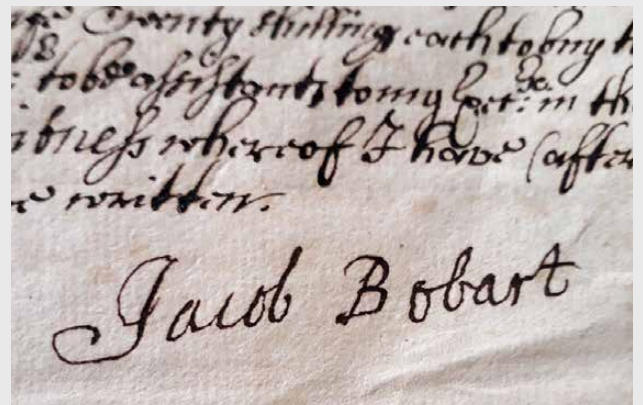 Twenty shilling each to buy
to be assistants to my in th
itness whereof I have (after
e written.
Jacob Bobart